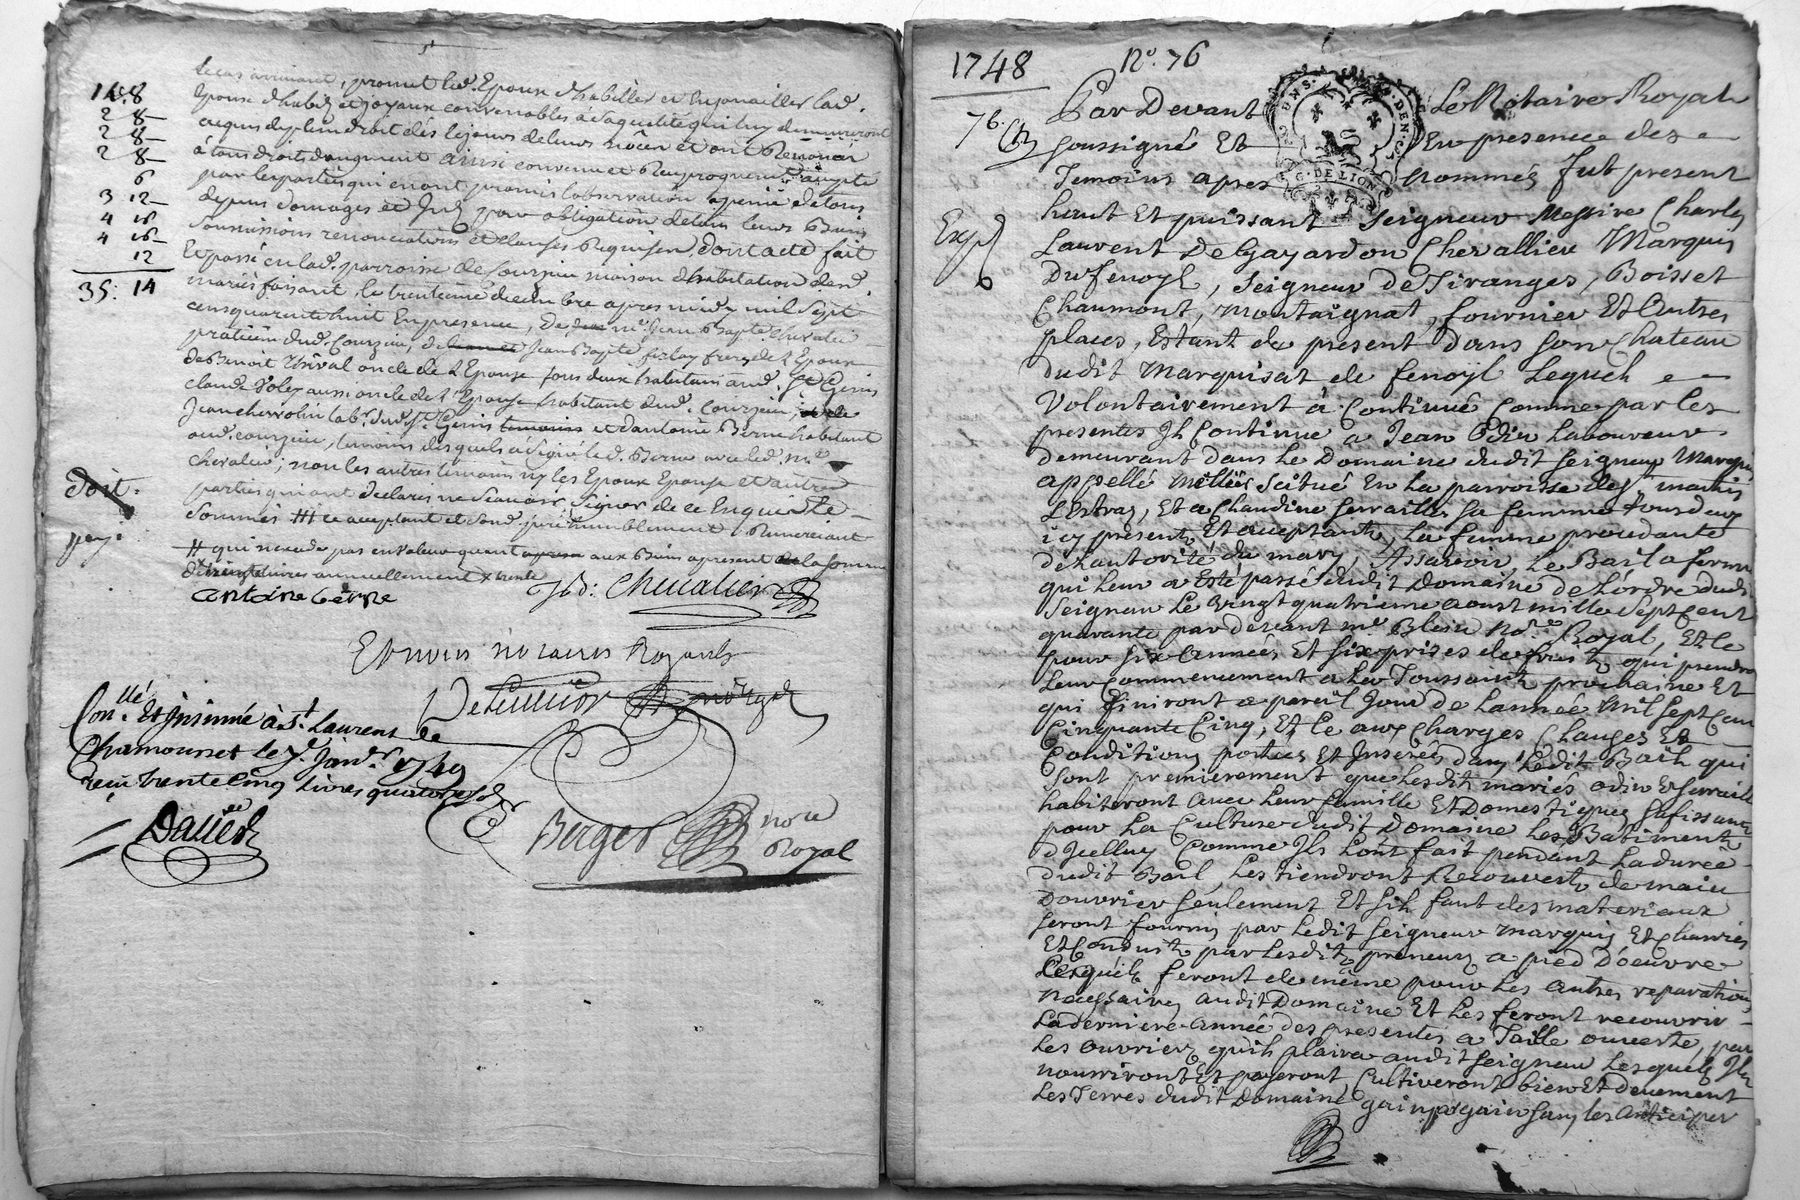 lecas arrivant, promet led. Epoux d'habiller et Enjoualler lad.
Epouse d'habits et joyaux convenables à sa qualité qui luy demeureront
acquis de plein droit dés le jour de leurs nôces et ont Renoncé
à tous droits d'augment ainsi convenu et Reciproquement accepté
par les parties qui en ont promis l'observation a peine de tous
depens domages et par obligation de tous leurs Biens
Soumissions renonciations et clauses Requises, dont acte fait
Et passé en lad. parroisse de Courzieu maison d'habitation desd.
mariés faisant le trentieme decembre apres midy mil Sept
cens quarente huit En presence, De me. Jean Bapte. Chevalier
praticien dud. Courzieu, de Jean Bapte frere de l'Epoux
de Benoit Thival oncle de l'Epouse tous deux habitans aud. St Genis
claude aussi oncle de l'Epouse habitant dud. Courzieu,
Jean chervolin labr. dud. St. Genis temoins et d'antoine Berne habitant
aud. courzieu, temoins desquels a Signé led. Berne avec led. me.
chevalier, non les autres temoins ny les Epoux Epouse et autres
parties qui ont declaré ne Scavoir Signer de ce Enquis Le
Sommés # ce acceptant et tres humblement Remerciant
# qui n'excede pas en valeur quant aux Biens a present la somme
de livres annuellement x trente
168
2 8
2 8
2 8
6
3 12
4 16
4 16
12
35: 14
Doit.
paye
antoine berne
JB: Chevalier
Et nous notaires Royaux
Conllé. Et Insinué à St. Laurent de
Chamousset le 7e. Janvr. 1749
reçu trente cinq livres quatorze sols
Daller
Berger nore
Royal
1748 No. 76
76.
Exp
G. DE LION
Par Devant Le Notaire Royal
soussigné Et En presence des
Temoins apres nommés fut present
haut Et puissant Seigneur Messire Charles
Laurent De Gayardon Chevallier Marquis
Du fenoyl, Seigneur de Tiranges, Boisset
Chaumont, Montaignat, fournier Et Autres
places, Estant de present dans Son Chateau
dudit Marquisat de fenoyl Lequel
Volontairement à Continué Comme par les
presentes Il Continue a Jean Odin Laboureur
demeurant dans Le Domaine dudit Seigneur Marquis
appellé Scitué En La parroisse de St. martin
Lestras, Et a Claudine ferraille Sa femme tous deux
icy presents Et acceptants, La femme procedante
de Lautorité du mary, Assavoir, Le Bail a ferme
qui Leur a Esté passé dudit Domaine de L'ordre dudit
Seigneur Le Vingt quatrieme aoust mille Sept Cent
quarante par devant me Blein Nore. Royal, Et Ce
pour Six Années Et Six prises de fruits qui prendront
Leur Commencement a La Toussaint prochaine Et
qui finiront a pareil Jour de L'année Mil Sept Cent
Cinquante Cinq, Et Ce aux Charges Clauses Et
Conditions portées Et Inserés dans Ledit Bail qui
Sont premierement que Lesdits mariés odin Et ferraille
habiteront avec Leur famille Et Domestiques Sufissants
pour La Culture dudit Domaine Les Batiments
d'Icelluy Comme Ils L'ont fait pendant La durée
dudit Bail, Les tiendront Recouverts de main
D'ouvrier Seulement Et S'il faut des materiaux
Seront fournis par Ledit Seigneur Marquis Et Charriés
Et Conduits par Lesdits preneurs a pied D'oeuvre
Lesquels feront de même pour Les Autres reparations
necessaires audit Domaine Et Les feront recouvrir
La derniere année des presentes a Taille ouverte, par
Les ouvriers qu'il plaira audit Seigneur Lesquels Ils
nourriront Et payeront, Cultiveront bien Et Deuement
Les Terres dudit Domaine gain par gain Sans les Anticiper